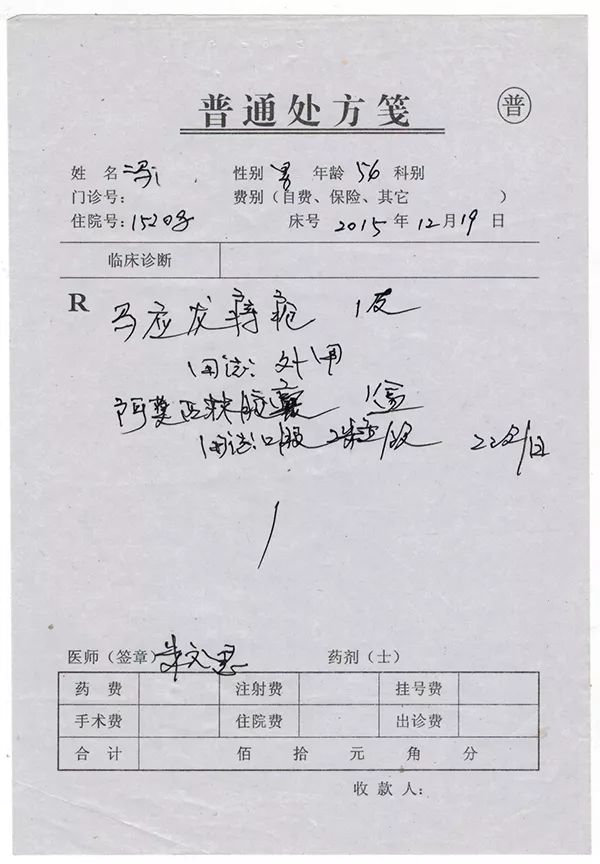 普通处方笺 普
姓 名 性别 男 年龄 56 科别
门诊号: 费别（自费、保险、其它 ）
住院号: 床号 2015 年 12 月 19 日
临床诊断
R 马应发痔疮 1支
用法: 外用
阿莫西林胶囊 1盒
用法: 口服 2粒/次 2次/日
医师（签章） 朱文思 药剂（士）
药 费 注射费 挂号费
手术费 住院费 出诊费
合 计 佰 拾 元 角 分
收 款 人: